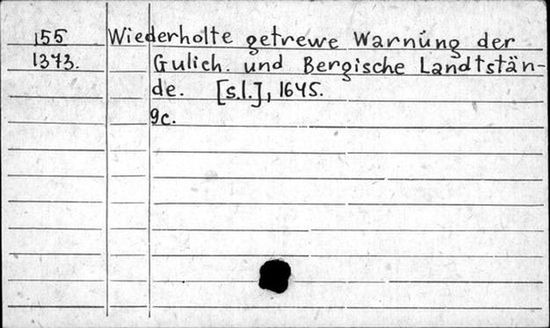 155 Wiederholte getrewe Warnung der
1373. Gulich. und Bergische Landtstän-
de. [s.l.], 1645.
9c.